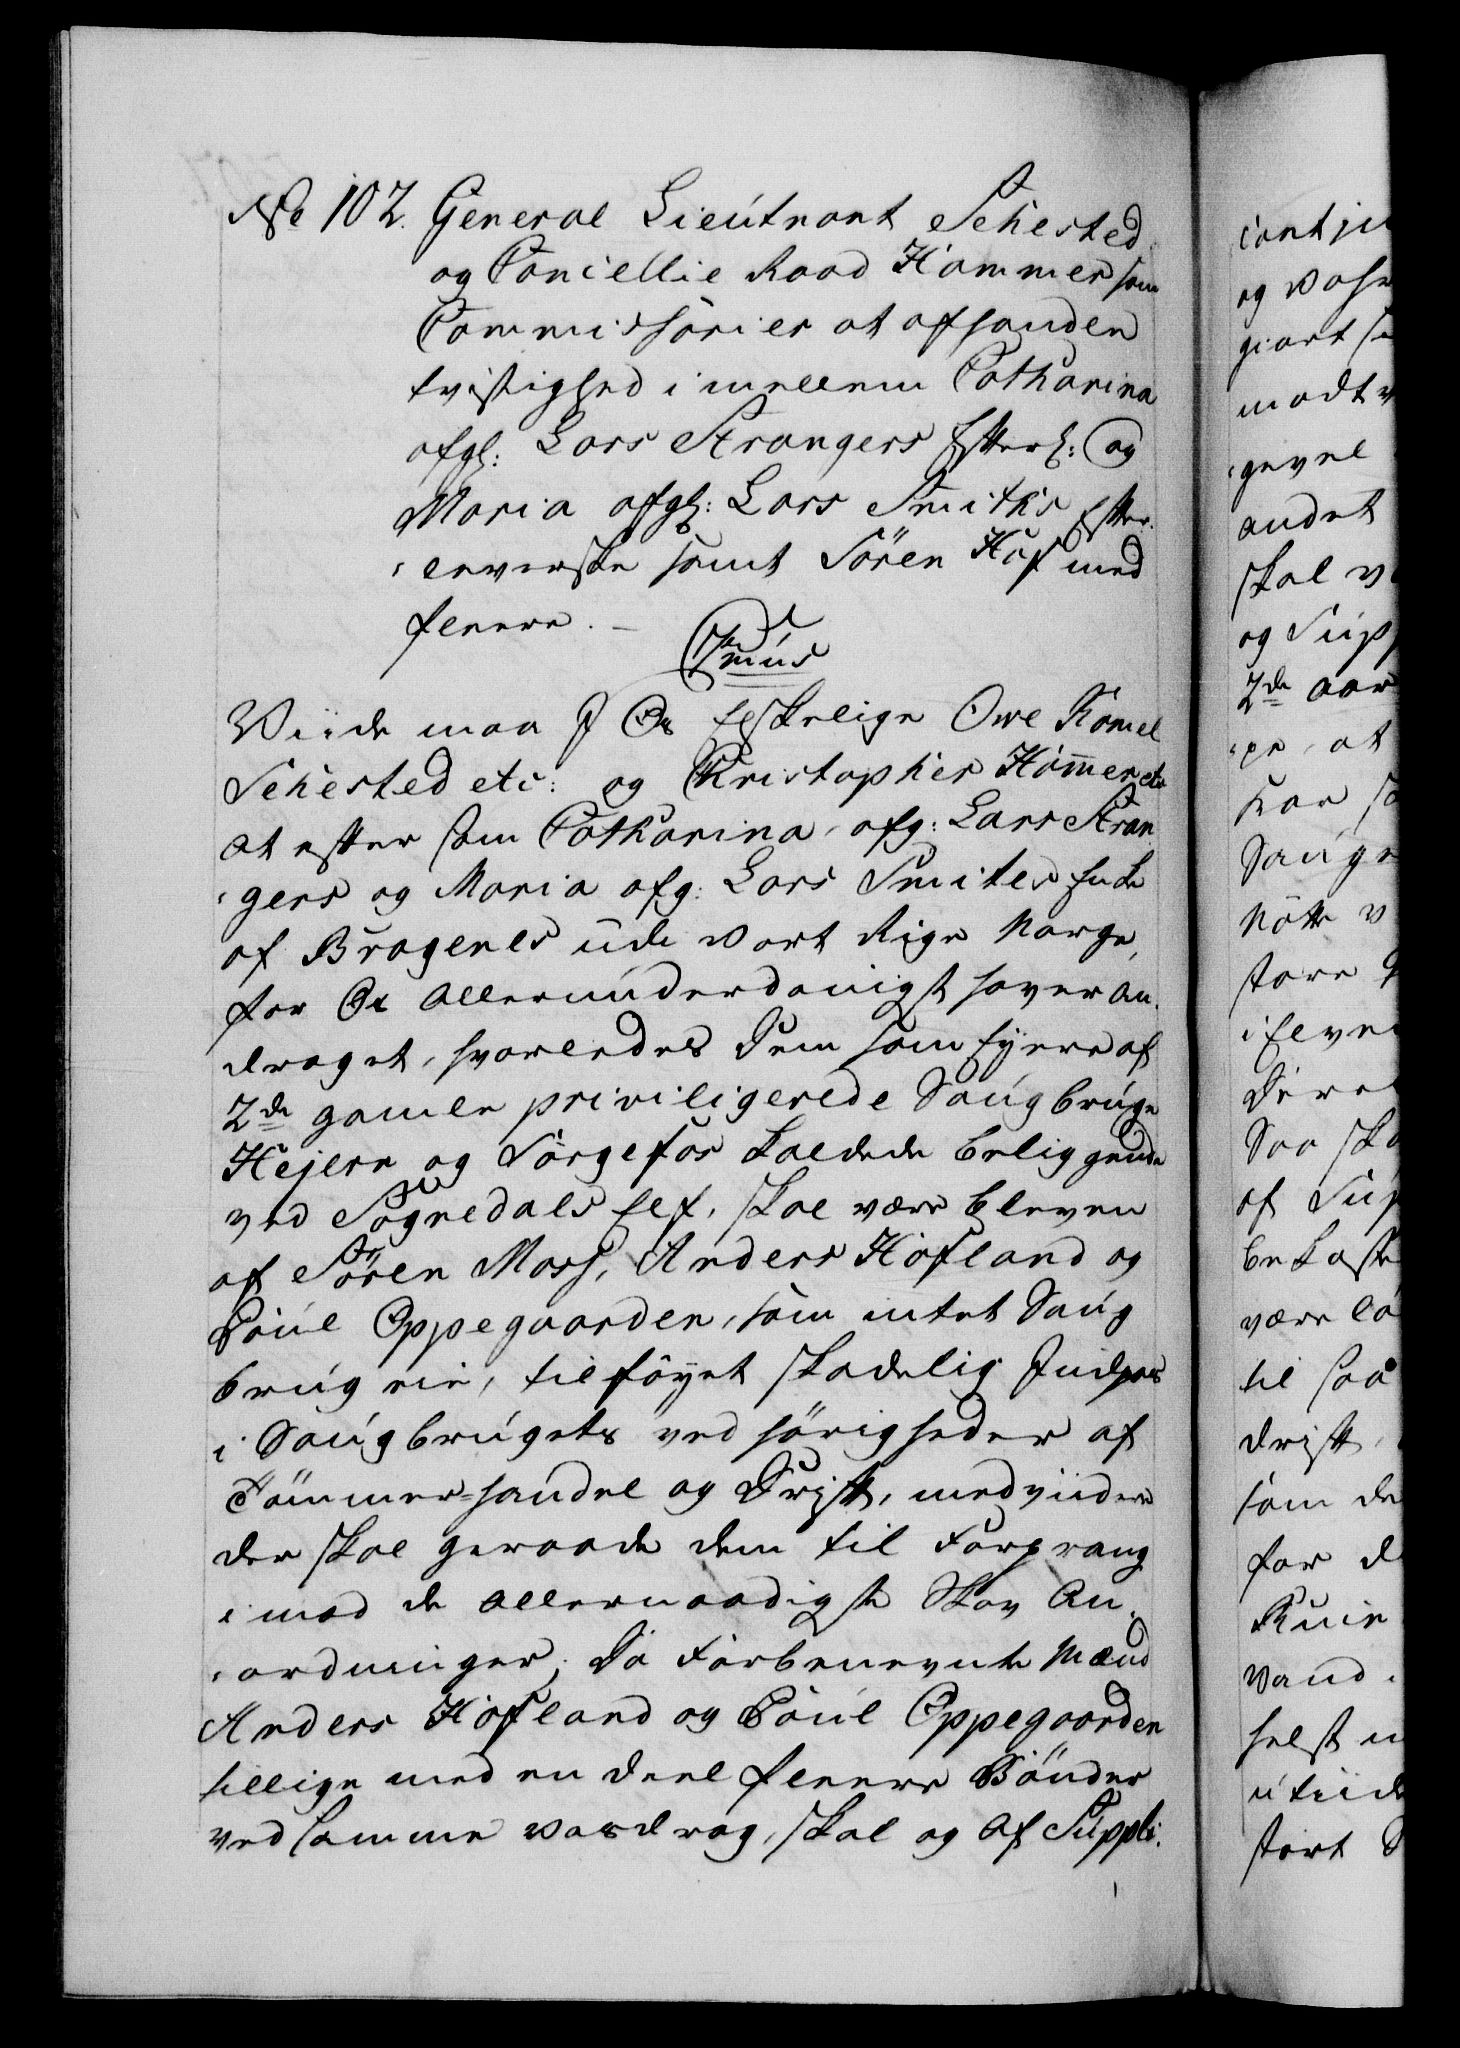 No 102. General Lieutnant Sehested
og Cancellie Raad Hammer som
Commissarier at afhandle
tvistighed imellem Catharina
afgl: Lars Strangers Efterl: og
Maria afgl: Lars Smiths Efter-
leverske samt Sören Hof med
fleere. –
Cmus
Viide maa I Os Elskelige Owe Ramel
Sehested etc: og Christopher Hammer etc
at efter som Catharina afg: Lars Stran-
gers og Maria afg: Lars Smites Enke
af Bragenes udi Vort Rige Norge,
for Os allerunderdanigst haver an-
draget, hvorledes Dem som Eyere af
2de gamle priviligerede Saugbruge
Hejern og Sörgefos kaldede beliggende
ved Sognedals Elf, skal være bleven
af Sören Moss, Anders Hofland og
Poul Oppegaarden, som intet Saug
brug eie, tilföyet skadelig Indpas
i Saugbrugets ved hörigheder af
Tömmer-handel og Drift, med videre
der skal geraade dem til Forprang
imod de allernaadigste Skov An-
ordninger; Da Forbenevnte Mænd
Anders Hofland og Poul Oppegaarden
tillige med en deel fleere Bönder
ved samme vasdrag, skal og af Suppli-